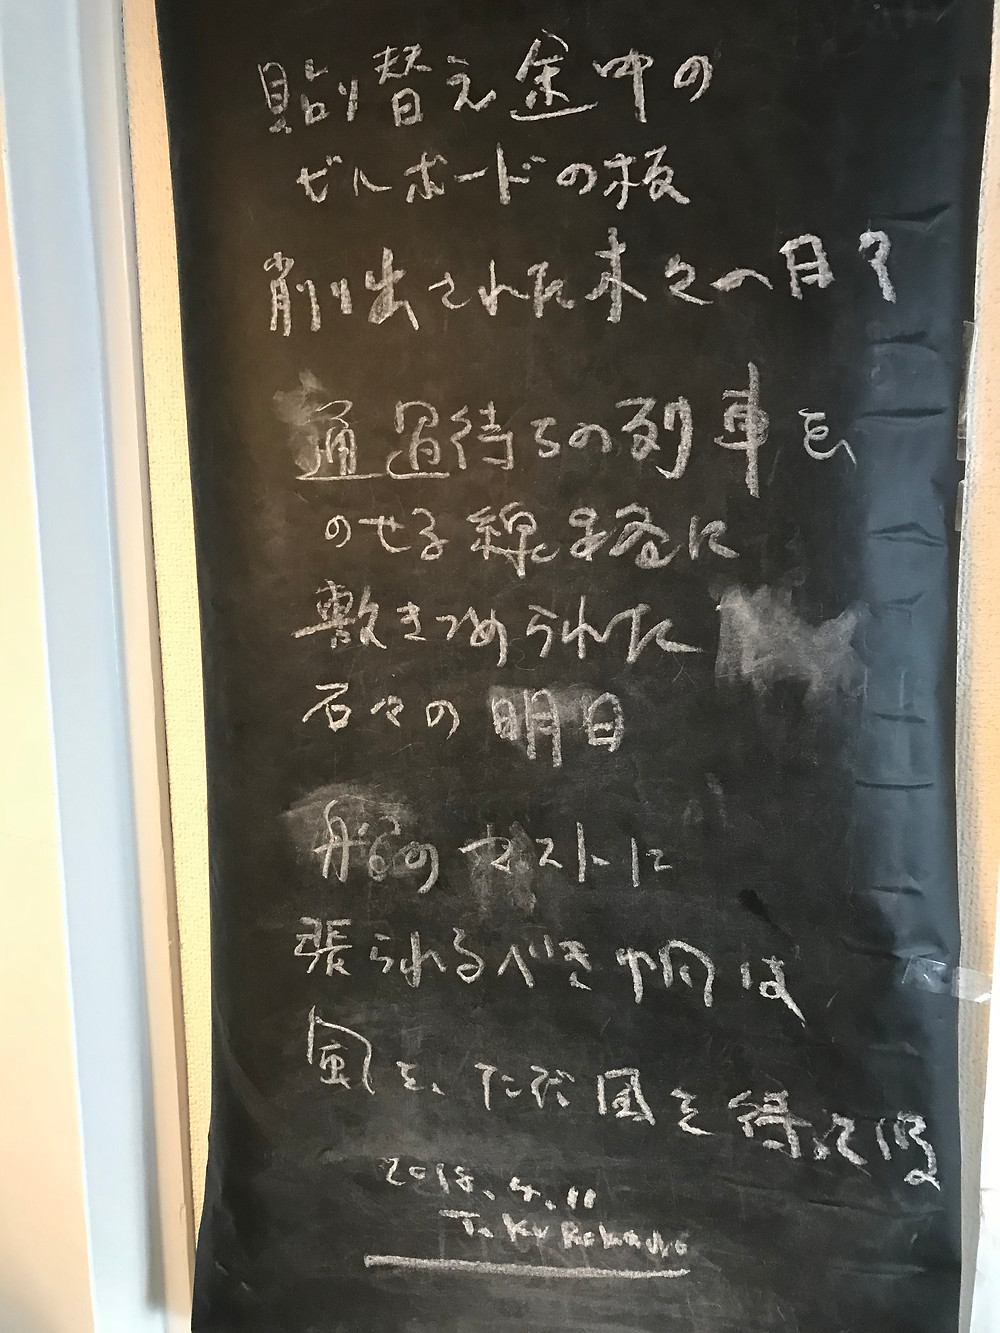 貼り替え途中の
ビルボードの板
削り出された木々の月?
通過待ちの列車を
のせる線路に
敷きつめられた
石々の明日
船のマストに
張られるべき帆は
風を、ただ風を待っている
2018.4.11